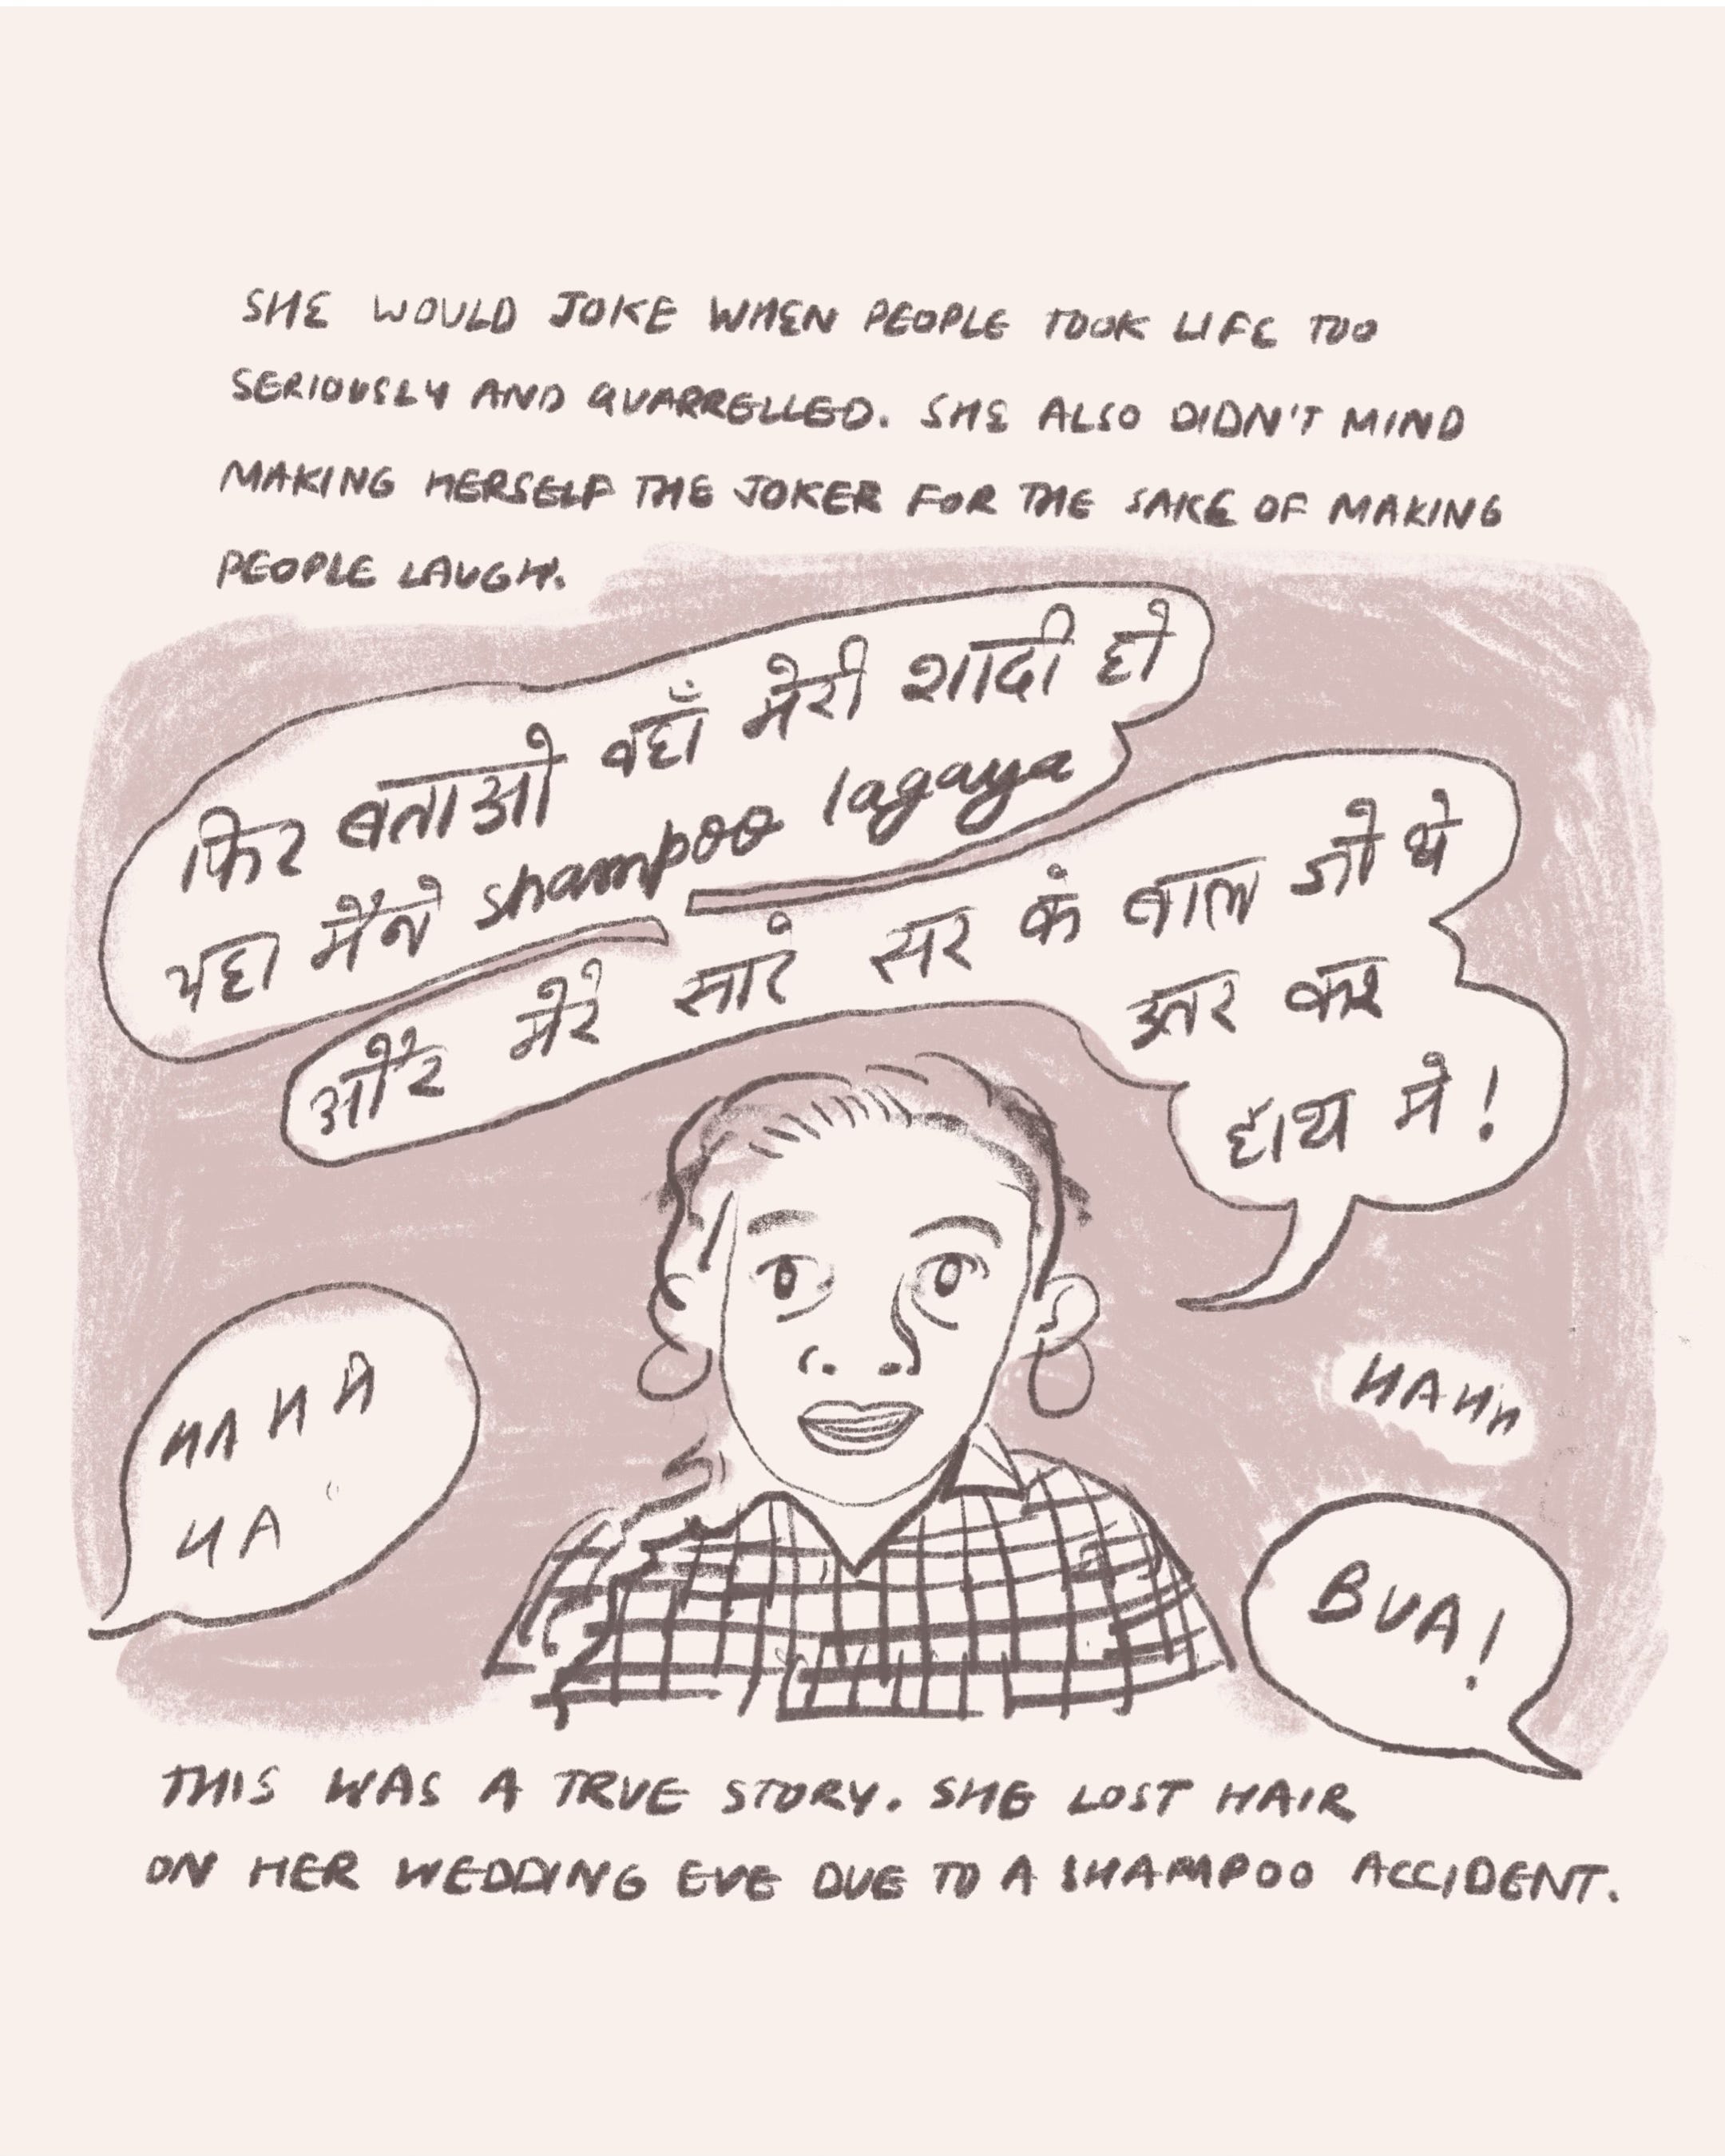 SHE WOULD JOKE WHEN PEOPLE TOOK LIFE TOO
SERIOUSLY AND QUARRELLED. SHE ALSO DIDN'T MIND
MAKING HERSELF THE JOKER FOR THE SAKE OF MAKING
PEOPLE LAUGH.
फिर बताओ वहाँ मेरी शादी हो
यहा मैंने shampoo lagaya
और मेरे सारे सर के बाल जो थे
उतर कर
हाथ मे!
HA H H
HA
HAHH
BUA!
THIS WAS A TRUE STORY. SHE LOST HAIR
ON HER WEDDING EVE DUE TO A SHAMPOO ACCIDENT.